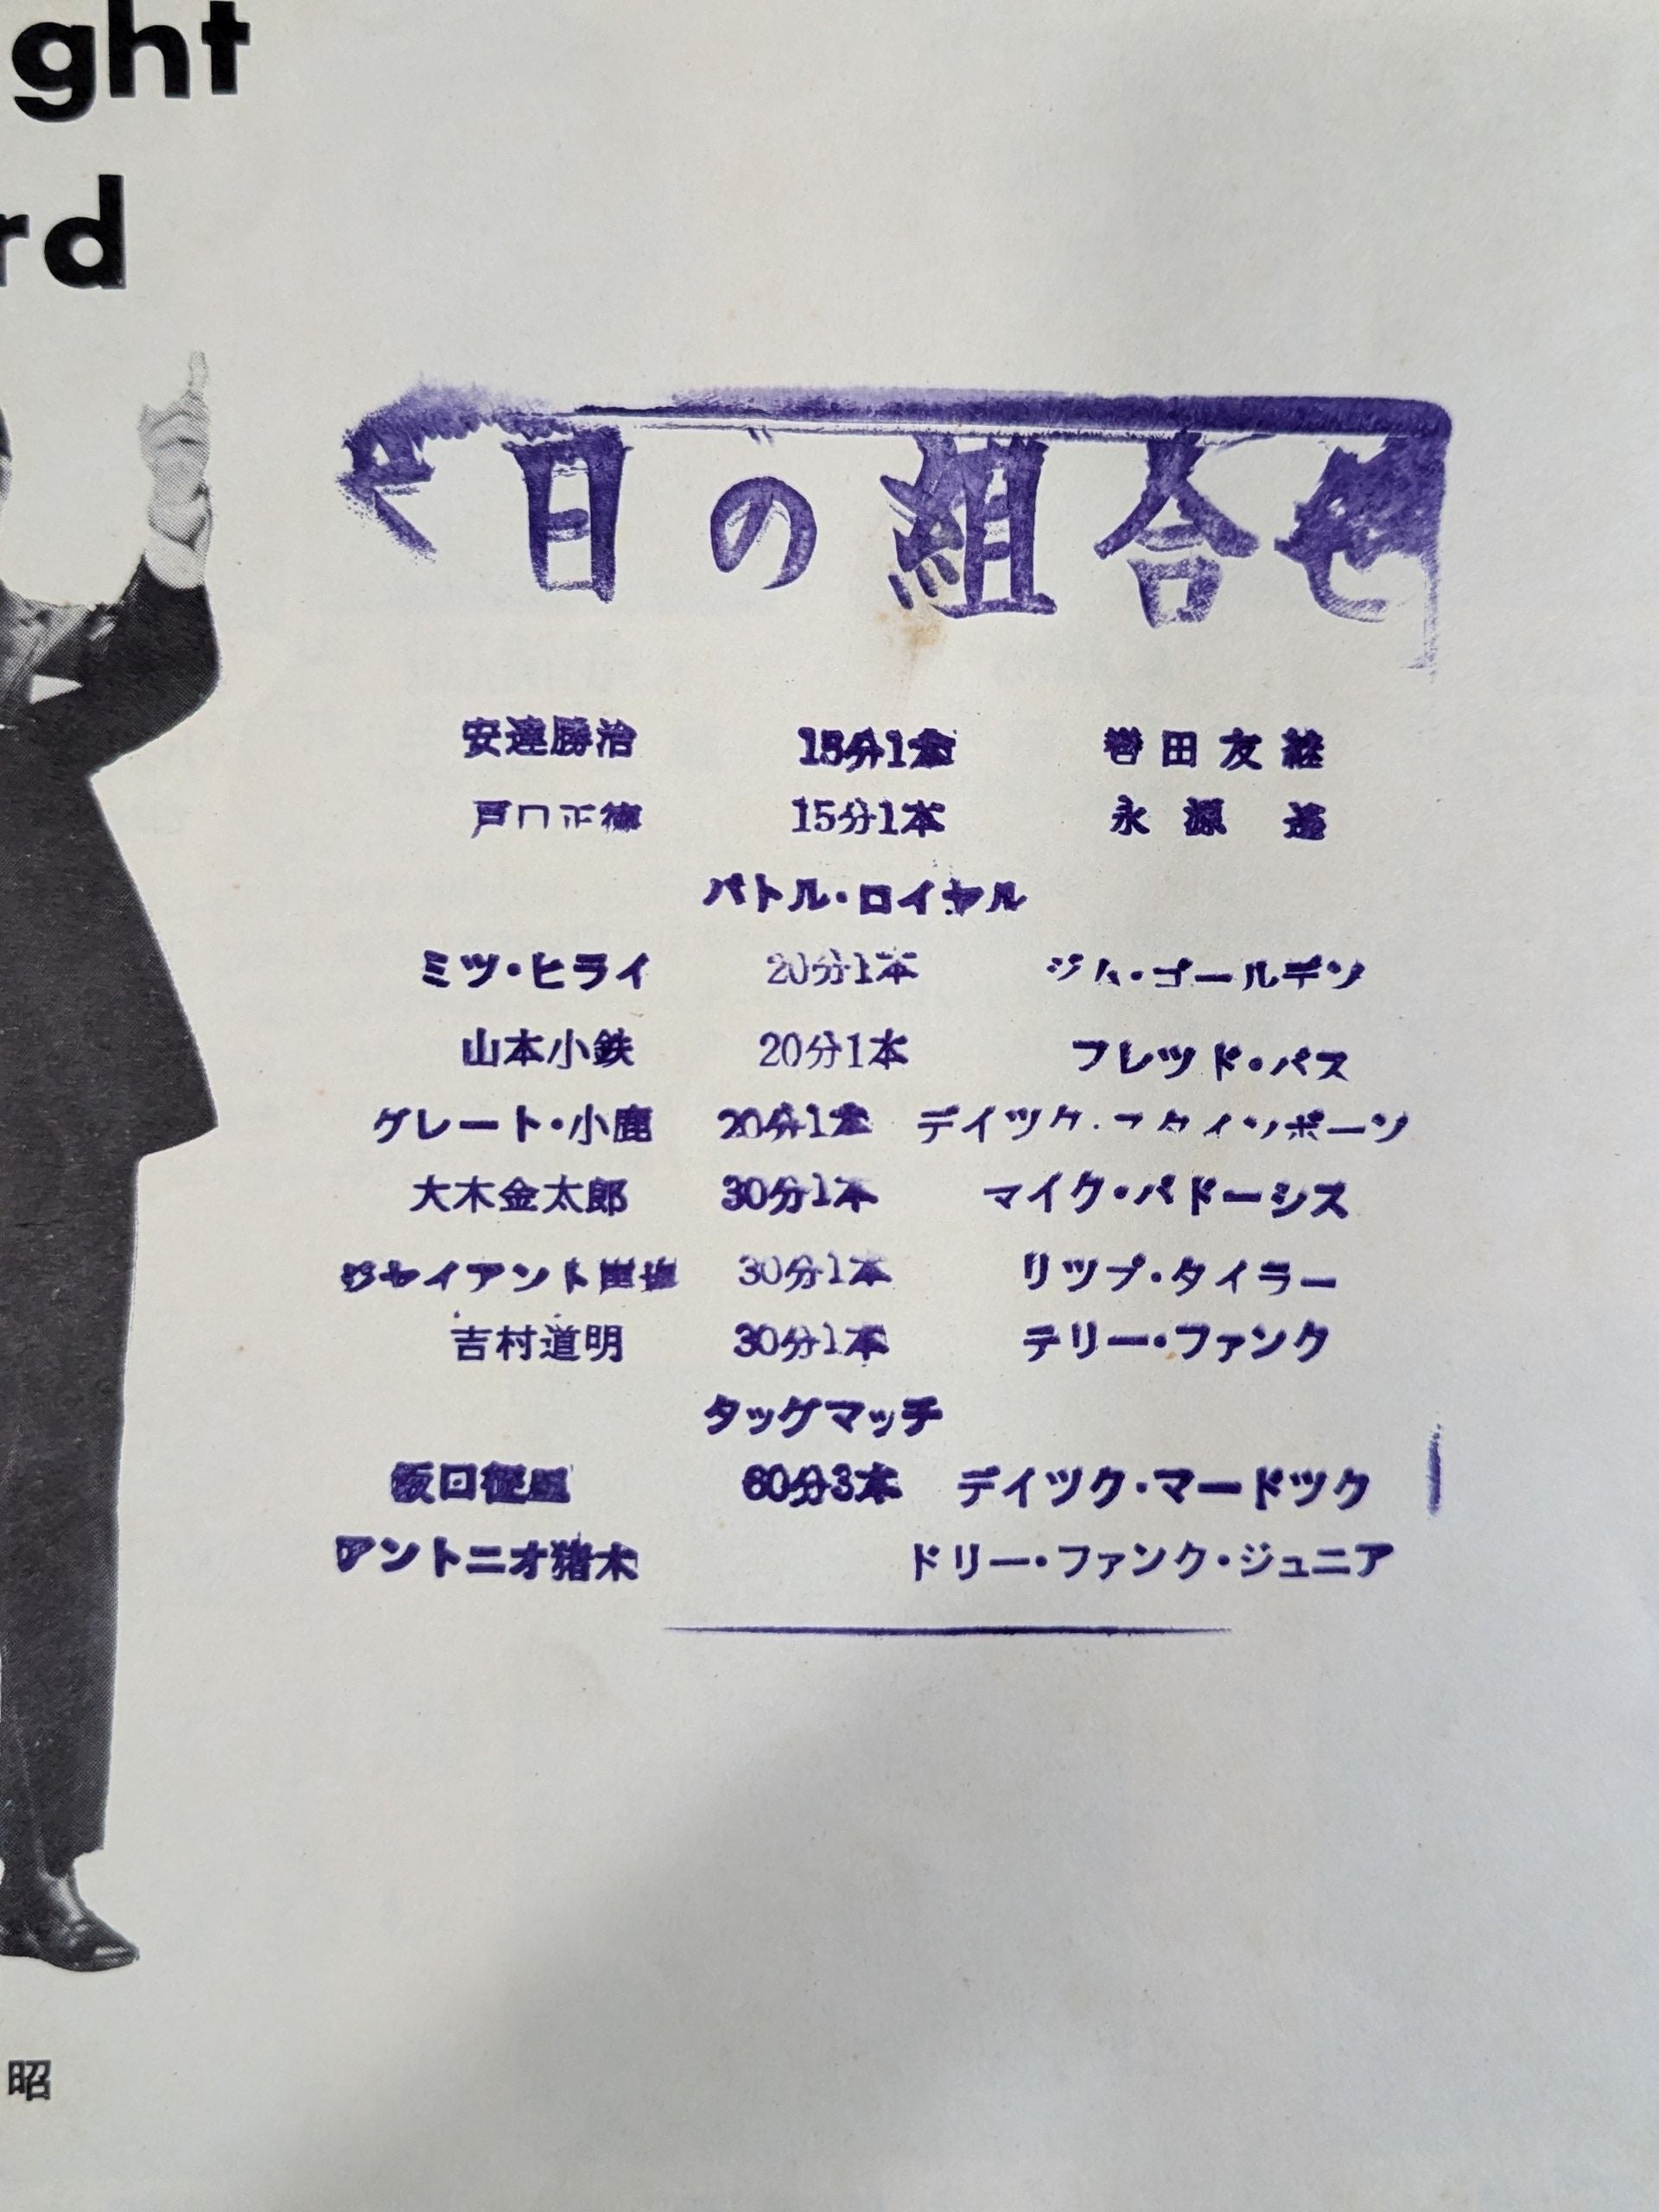 ght
rd
今日の組合せ
安達勝治 15分1本 轡田友継
戸口正徳 15分1本 永源遙
バトル・ロイヤル
ミツ・ヒライ 20分1本 ジム・ゴールデン
山本小鉄 20分1本 フレツド・パス
グレート・小鹿 20分1本 デイツク・スタインボーン
大木金太郎 30分1本 マイク・パドーシス
ジャイアント馬場 30分1本 リツプ・タイラー
吉村道明 30分1本 テリー・ファンク
タッグマッチ
坂口征二 60分3本 デイツク・マードツク
アントニオ猪木 ドリー・ファンク・ジュニア
昭